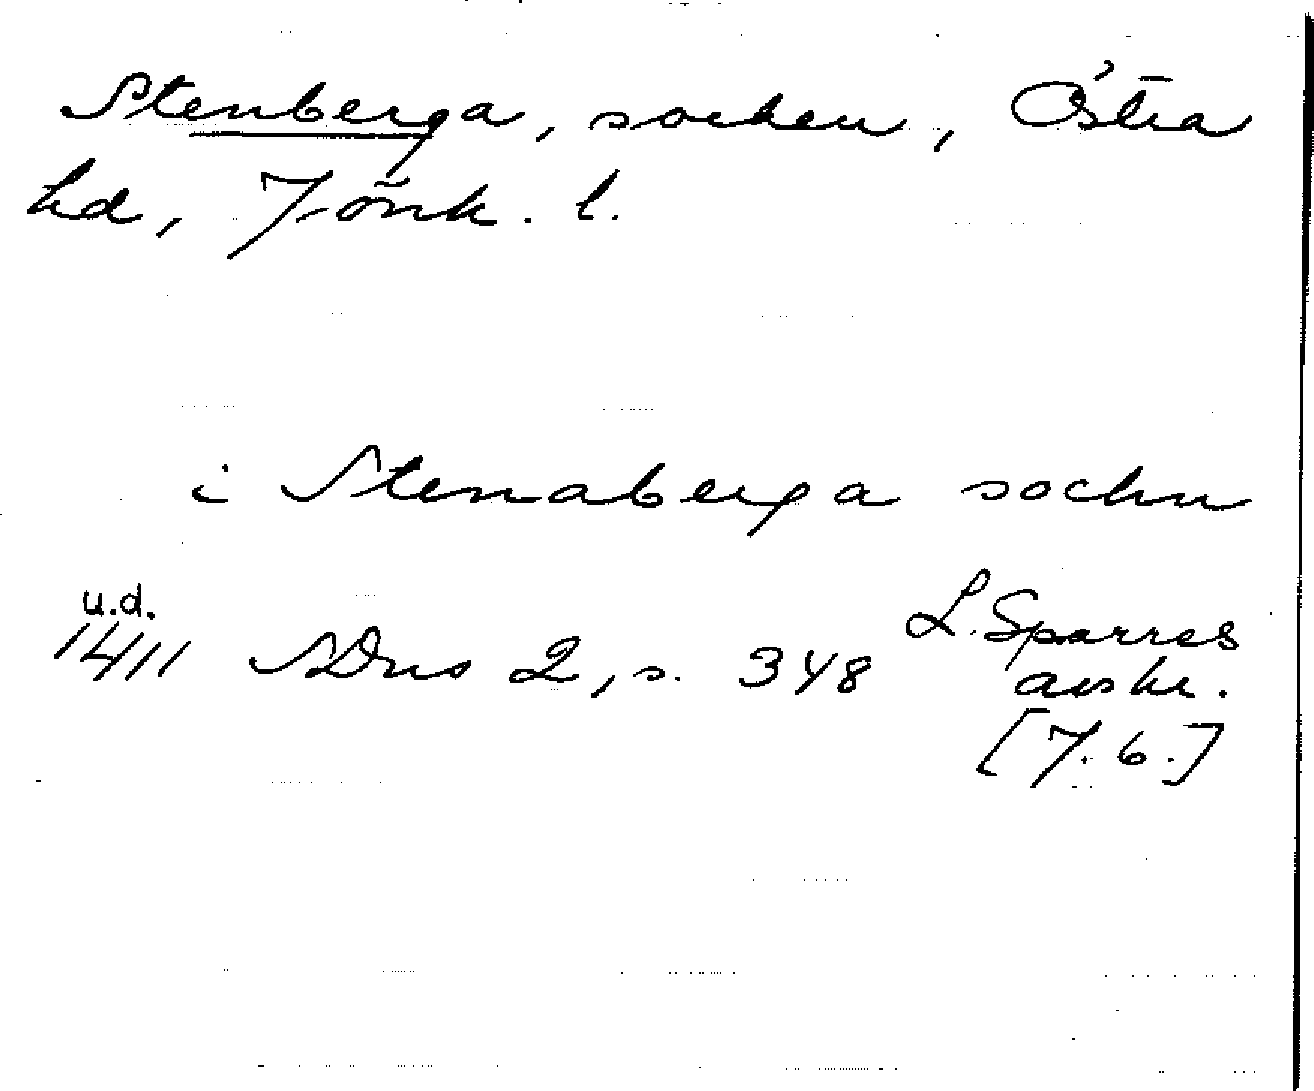 Stenberga, socken, Östra
hd, Jönk. l.
i Stenaberga sochn
u.d.
1411 SDns 2, s. 348 L. Sparres
avskr.
[7.6.]